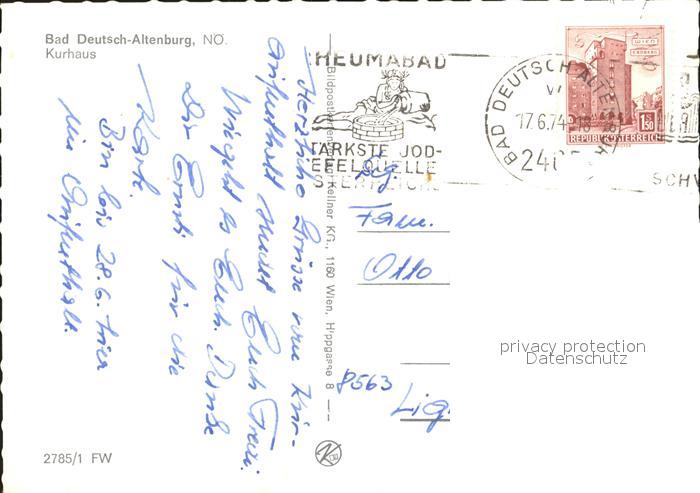 Bad Deutsch-Altenburg, NÖ.
Kurhaus
HEUMABAD
STÄRKSTE JOD-
BAD DEUTSCH ALTENBURG
17.6.74-18
24
WIEN
ERDBERG
S 1.50
REPUBLIK ÖSTERREICH
SCHW
Herzliche Grüsse vom Kur-
aufenthalt sendet Euch Franzi.
Wie geht es Euch. Danke
Dir Ernst für die
Karte.
Bin bis 28.6. hier
Kellner KG., 1160 Wien, Hippgasse 8
Fam.
Otto
8563
Lig
privacy protection
Datenschutz
2785/1 FW